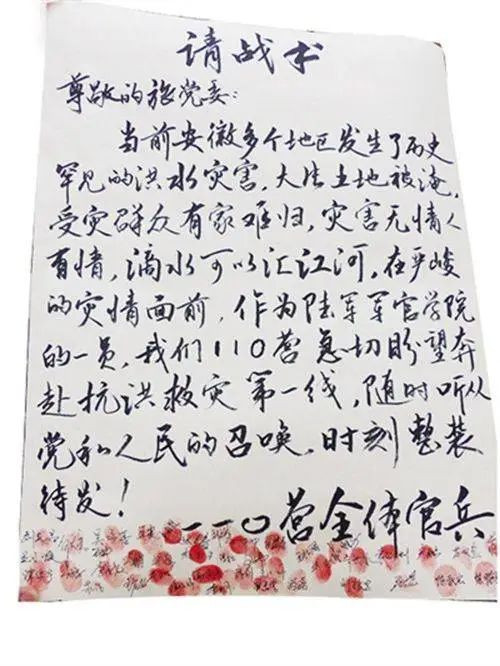 请战书
尊敬的旅党委：
当前安徽多个地区发生了历史
罕见的洪水灾害，大片土地被淹，
受灾群众有家难归，灾害无情人
有情，滴水可以汇江河，在严峻
的灾情面前，作为陆军军官学院
的一员，我们110营急切盼望奔
赴抗洪救灾第一线，随时听从
党和人民的召唤，时刻整装
待发！
一一〇营全体官兵